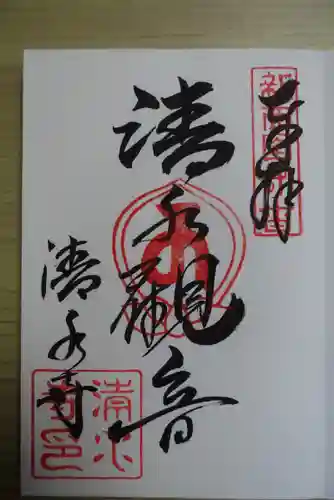 奉拝
清水観音
清水寺
清水寺印